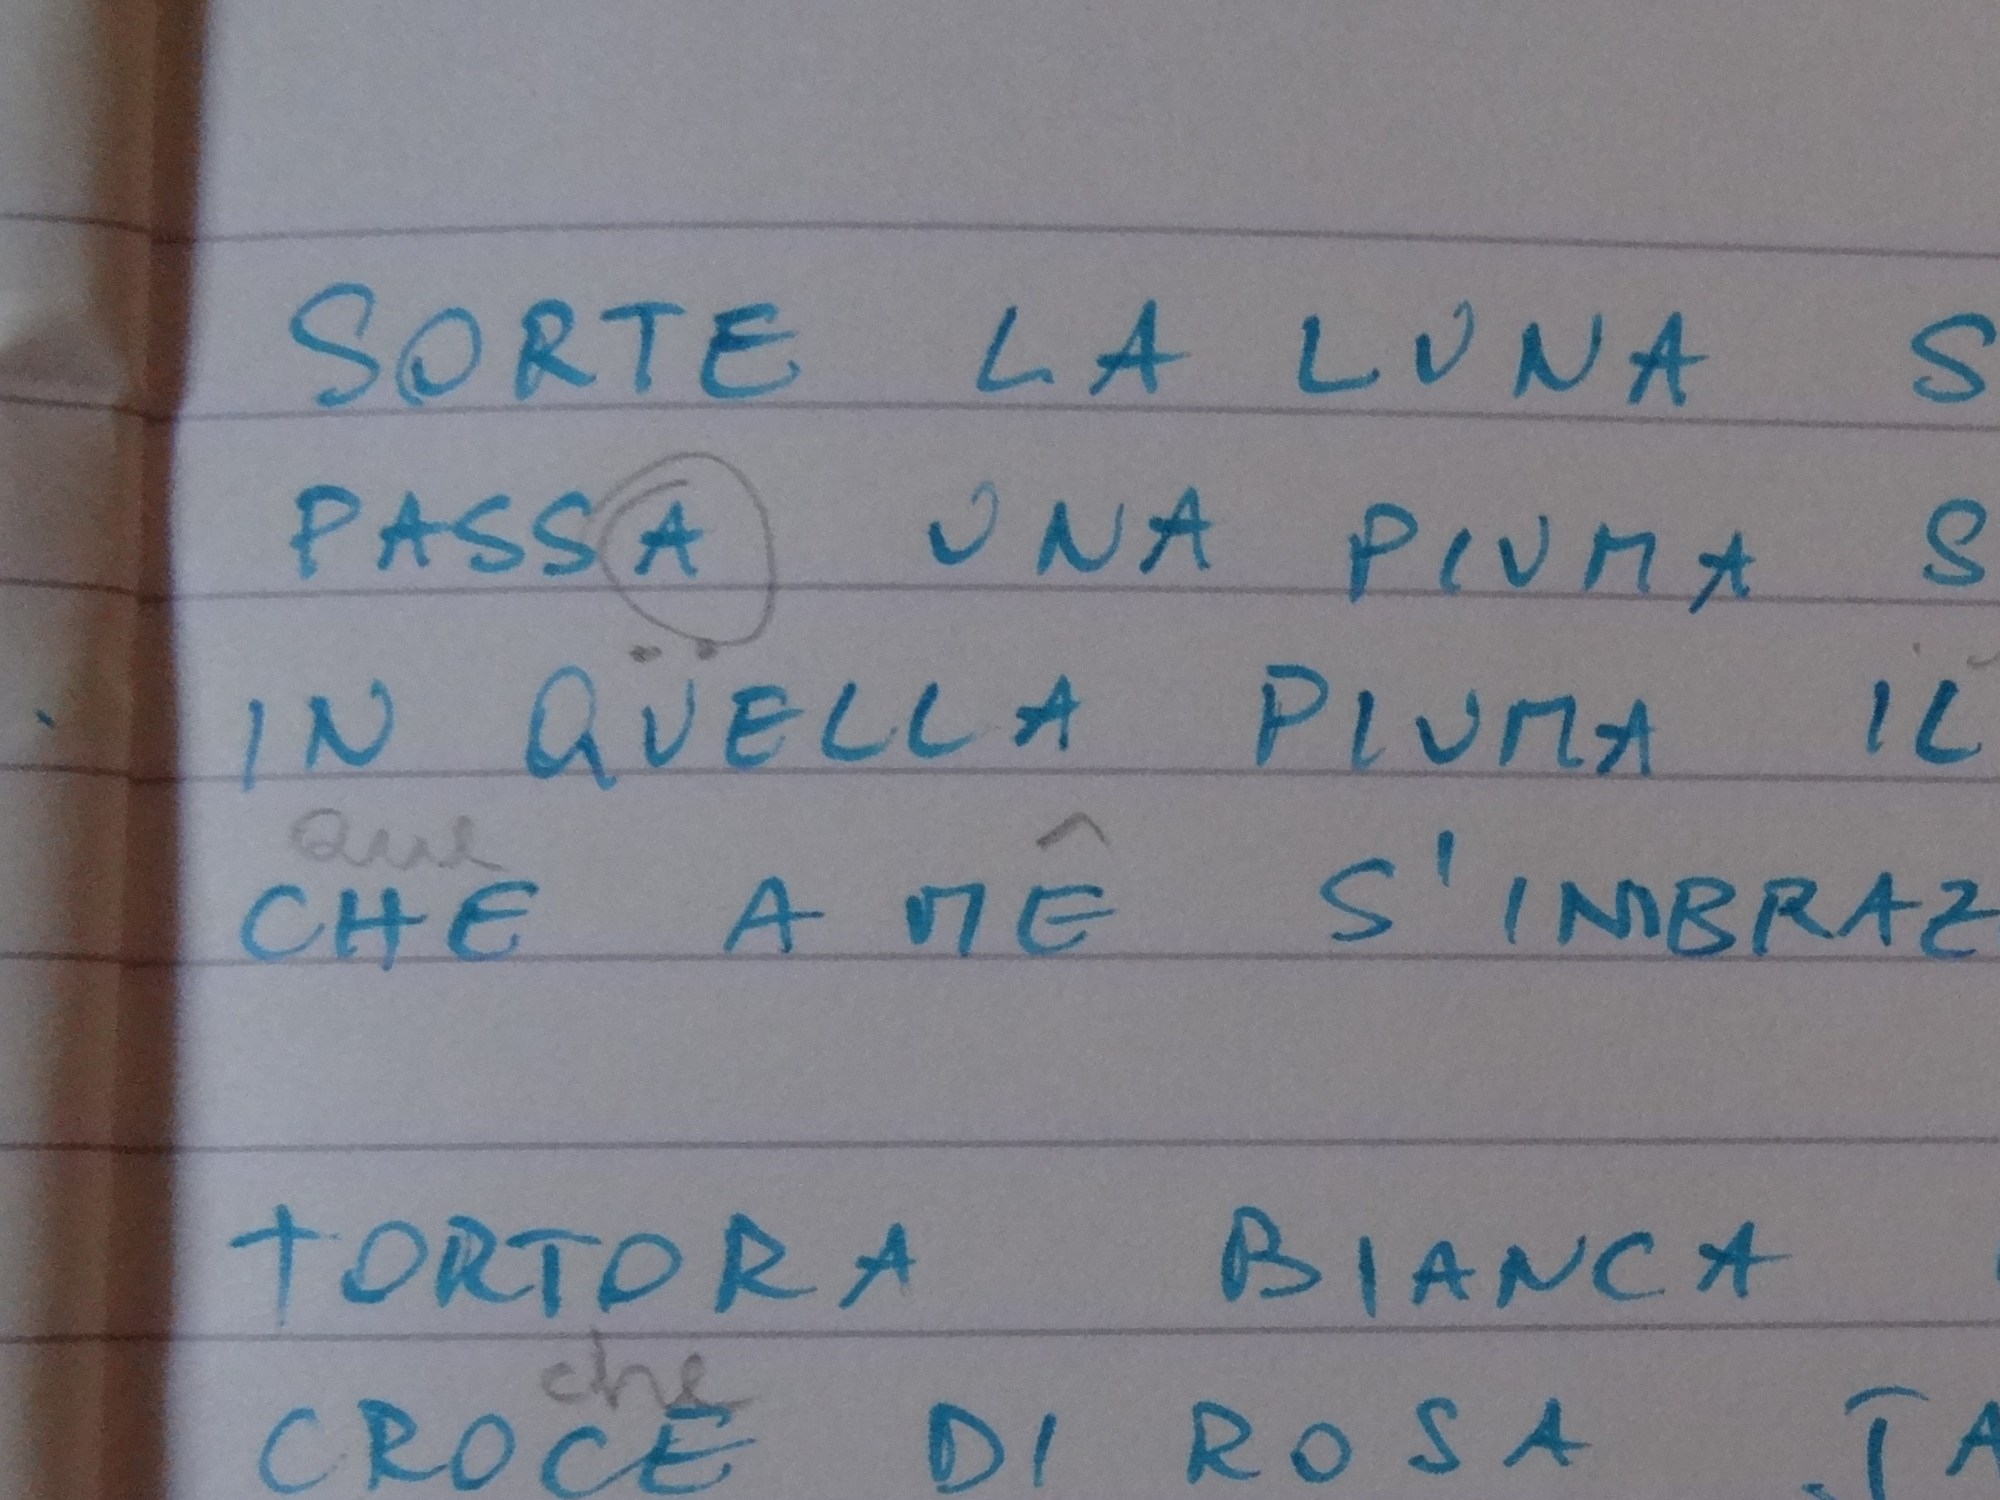 SORTE LA LUNA S
PASSA UNA PIUMA S
IN QÜELLA PIUMA IL
que
CHE A MÊ S'IMBRAZ
TORTORA BIANCA
che
CROCE DI ROSA TA